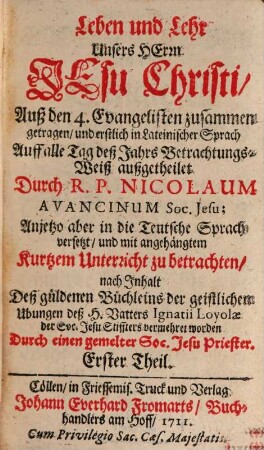 Leben und Lehr
Unsers HErrn
JEsu Christi/
Auß den 4. Evangelisten zusammen
getragen/ und erstlich in Lateinischer Sprach
Auff alle Tag deß Jahrs Betrachtungs-
Weiß außgetheilet
Durch R. P. NICOLAUM
AVANCINUM Soc. Jesu;
Anjetzo aber in die Teutsche Sprach
versetzt/ und mit angehängtem
Kurtzem Unterricht zu betrachten/
nach Inhalt
Deß güldenen Büchleins der geistlichen
Ubungen deß H. Vatters Ignatii Loyolæ
der Soc. Jesu Stiffters vermehret worden
Durch einen gemelter Soc. Jesu Priester.
Erster Theil.
Cöllen/ in Friessemis. Truck und Verlag
Johann Everhard Fromarts/ Buch-
handlers am Hoff/ 1711.
Cum Privilegio Sac. Cæs. Majestatis.